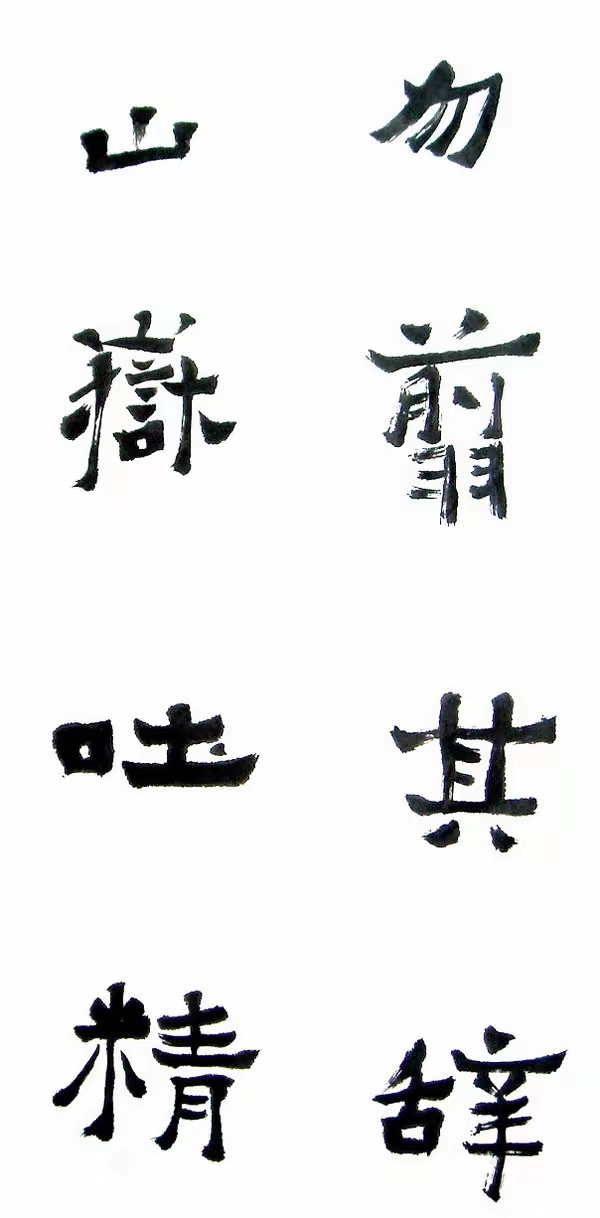 勿翦其辞
山嶽吐精